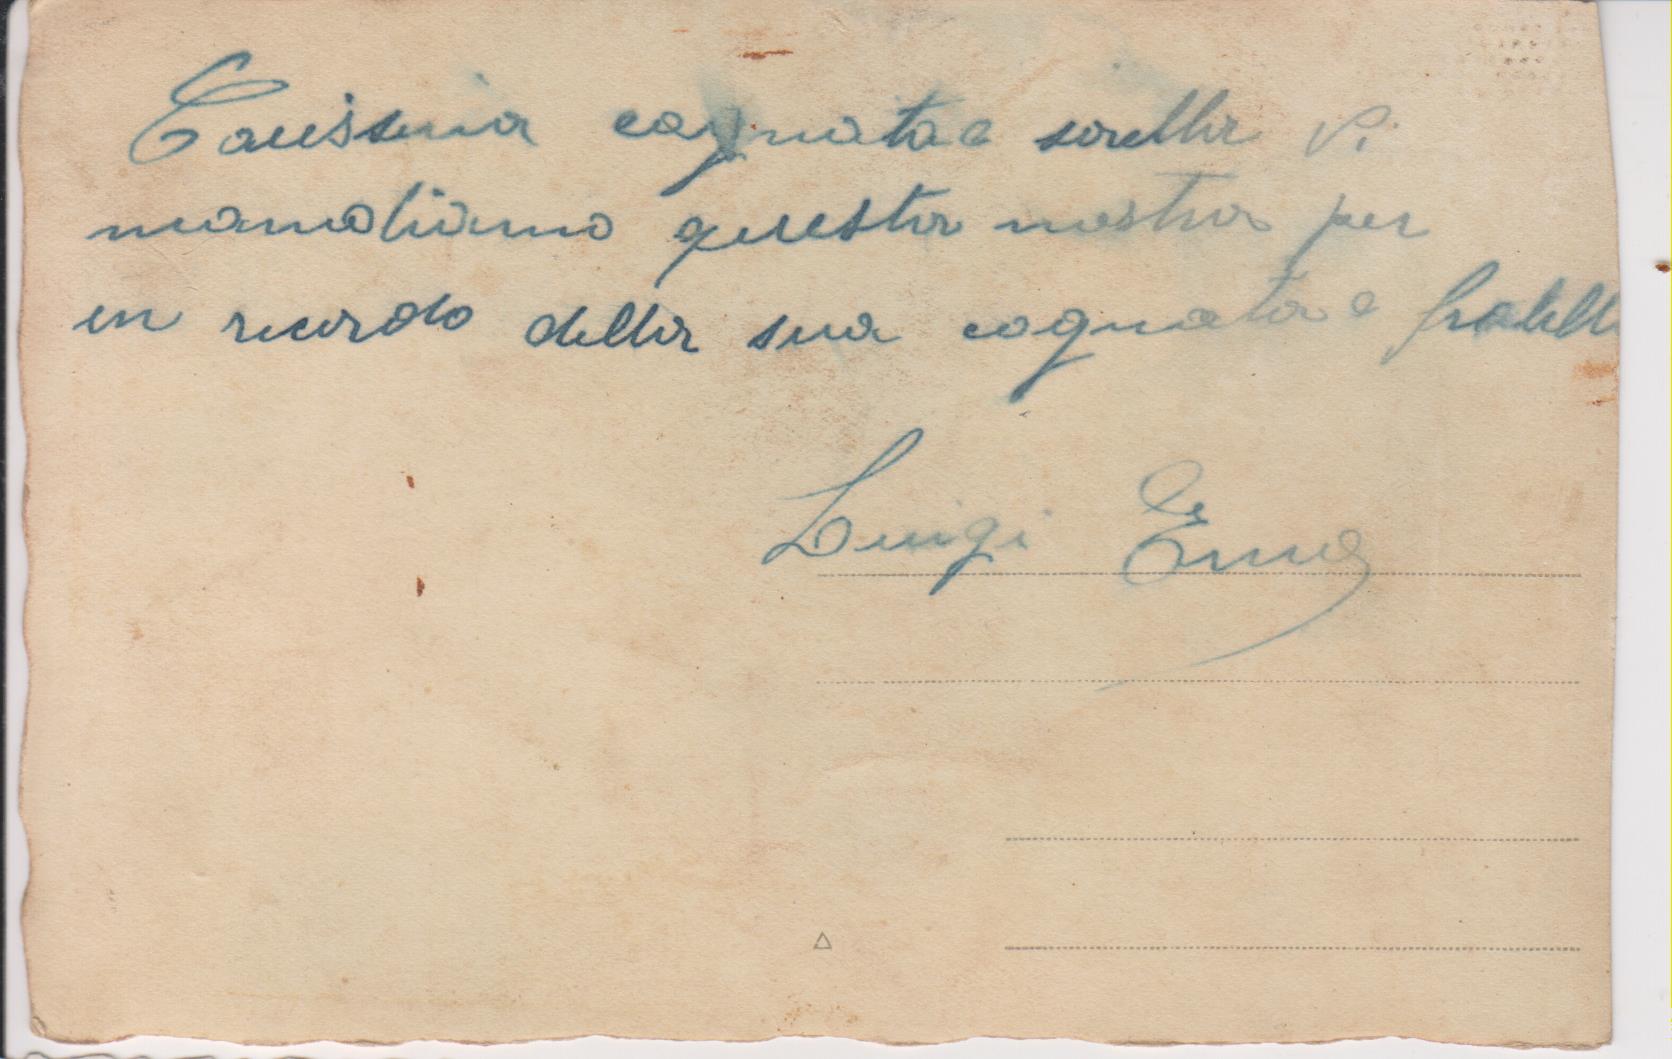 Carissima cognata e sorella vi
manadiamo questa nostra per
un ricordo della sua cognata e fratell
Luigi Ema